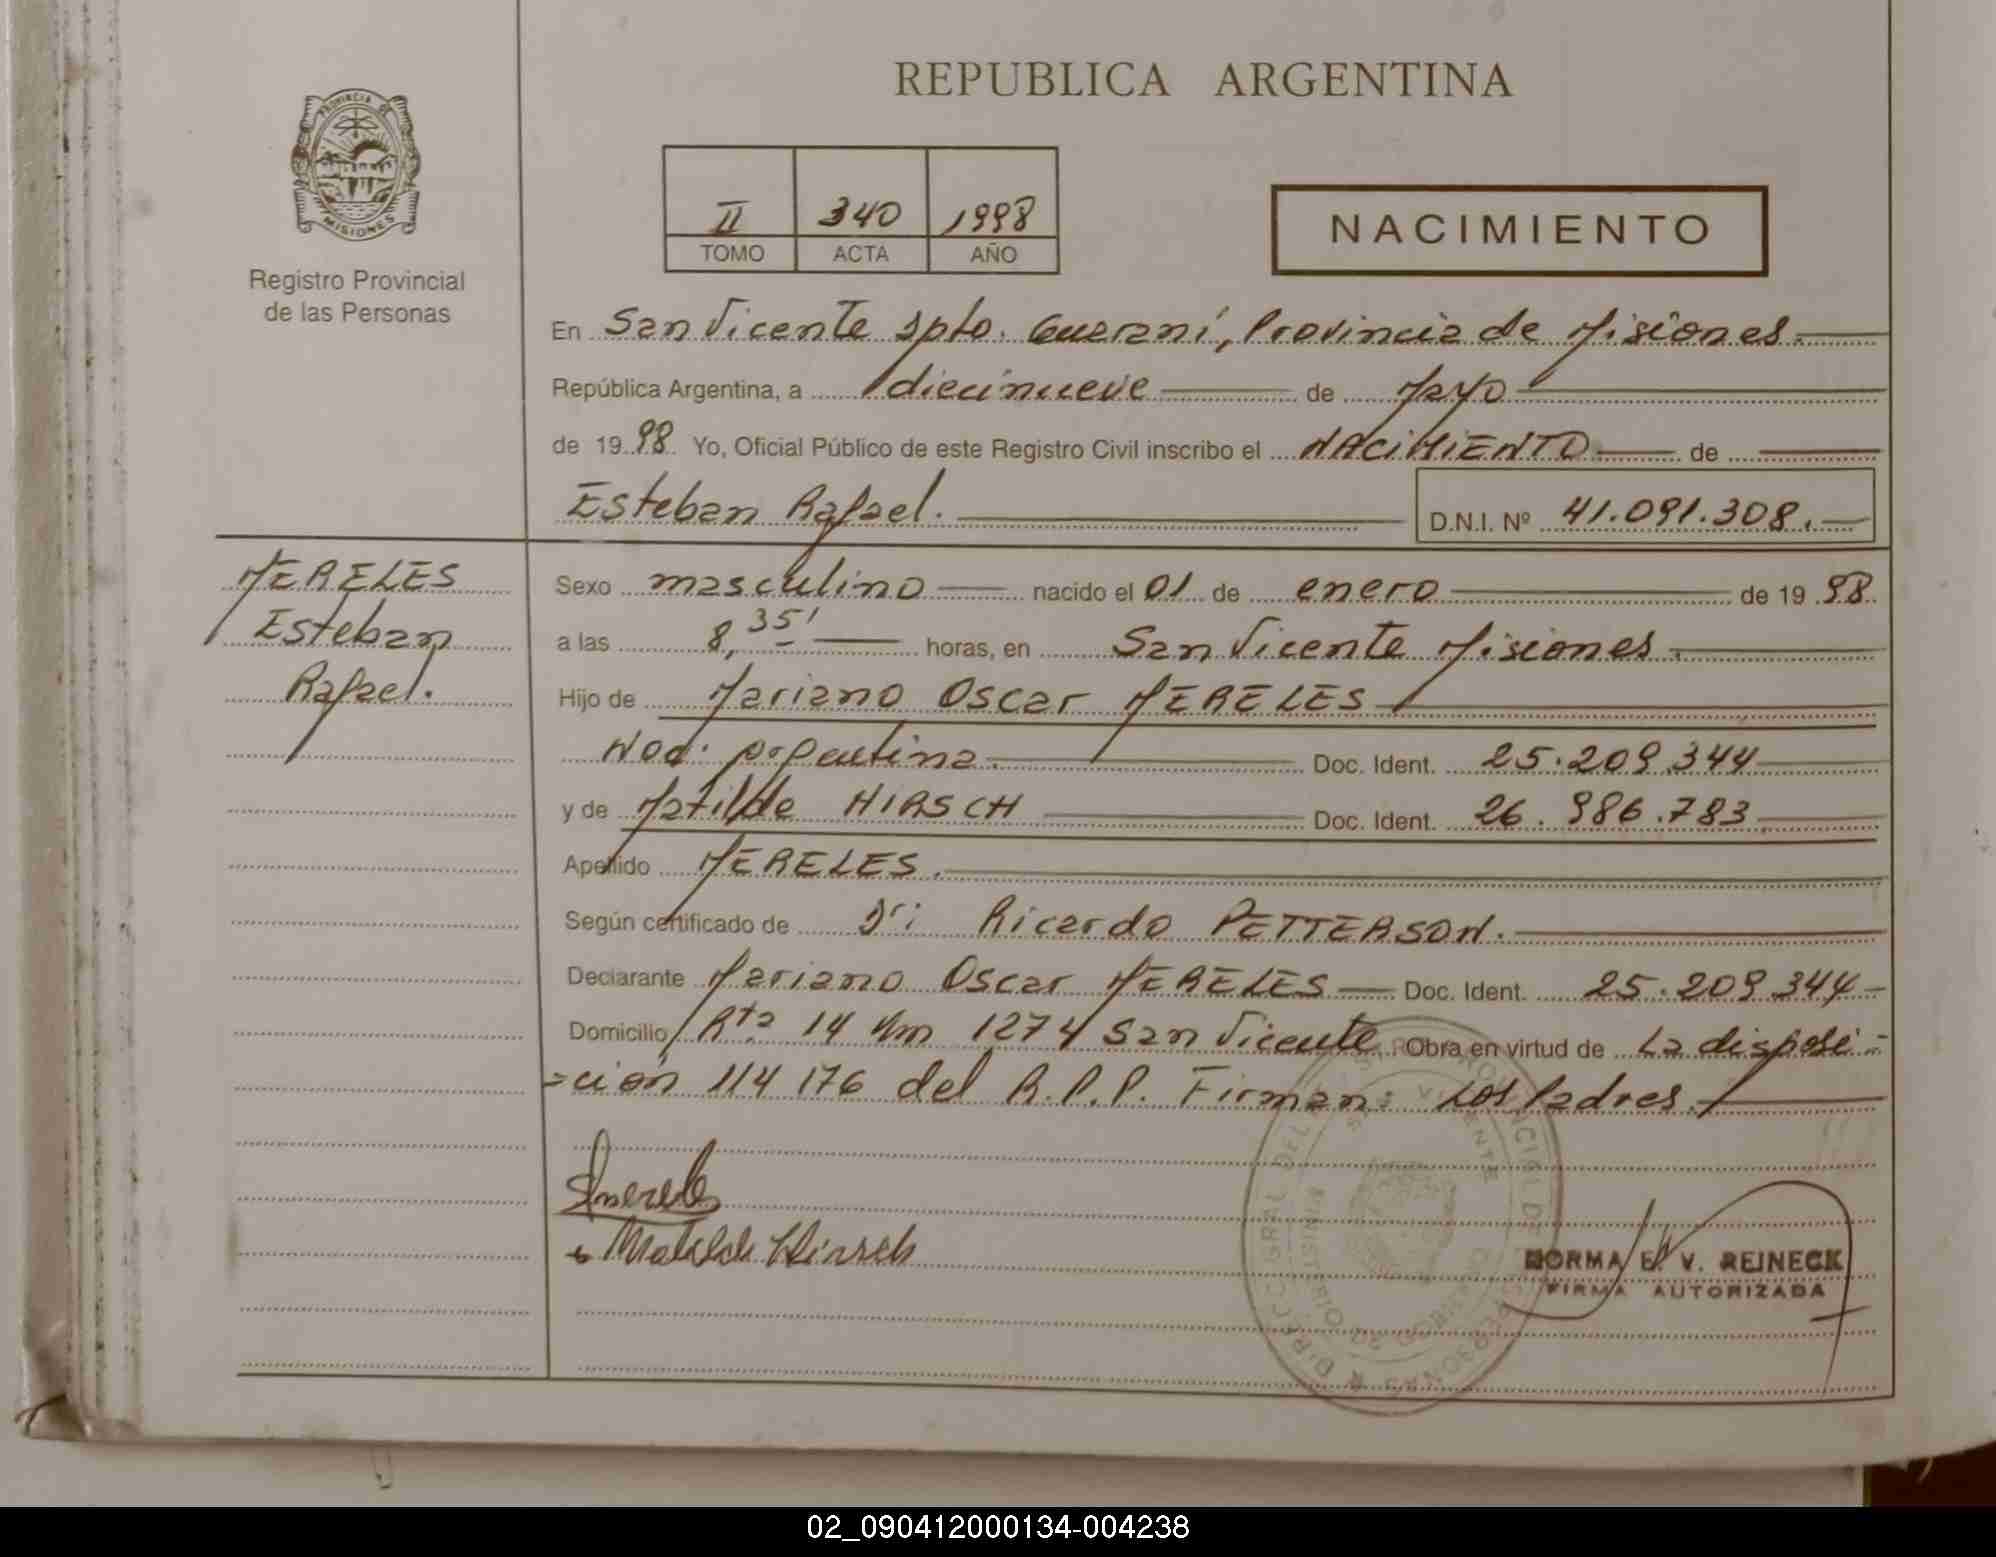 REPUBLICA ARGENTINA
PROVINCIA DE
MISIONES
Registro Provincial
de las Personas
II 340 1998
TOMO ACTA AÑO
NACIMIENTO
En San Vicente Dpto. Guaraní, Provincia de Misiones.
República Argentina, a diecinueve de Mayo
de 1998 Yo, Oficial Público de este Registro Civil inscribo el NACIMIENTO de
Esteban Rafael. D.N.I. Nº 41.091.308.
MERELES
Esteban
Rafael.
Sexo masculino nacido el 01 de enero de 1998
a las 8,35' horas, en San Vicente Misiones.
Hijo de Mariano Oscar MERELES
Nac. argentina. Doc. Ident. 25.209.344
y de Matilde HIRSCH Doc. Ident. 26.986.783
Apellido MERELES.
Según certificado de Dr: Ricardo PETTERSON.
Declarante Mariano Oscar MERELES Doc. Ident. 25.209.344
Domicilio Rta 14 Km 1274 San Vicente Obra en virtud de La disposi-
-ción 114176 del R.P.P. Firman: Los Padres.
Matilde Hirsch
NORMA E. V. REINECK
FIRMA AUTORIZADA
02_090412000134-004238